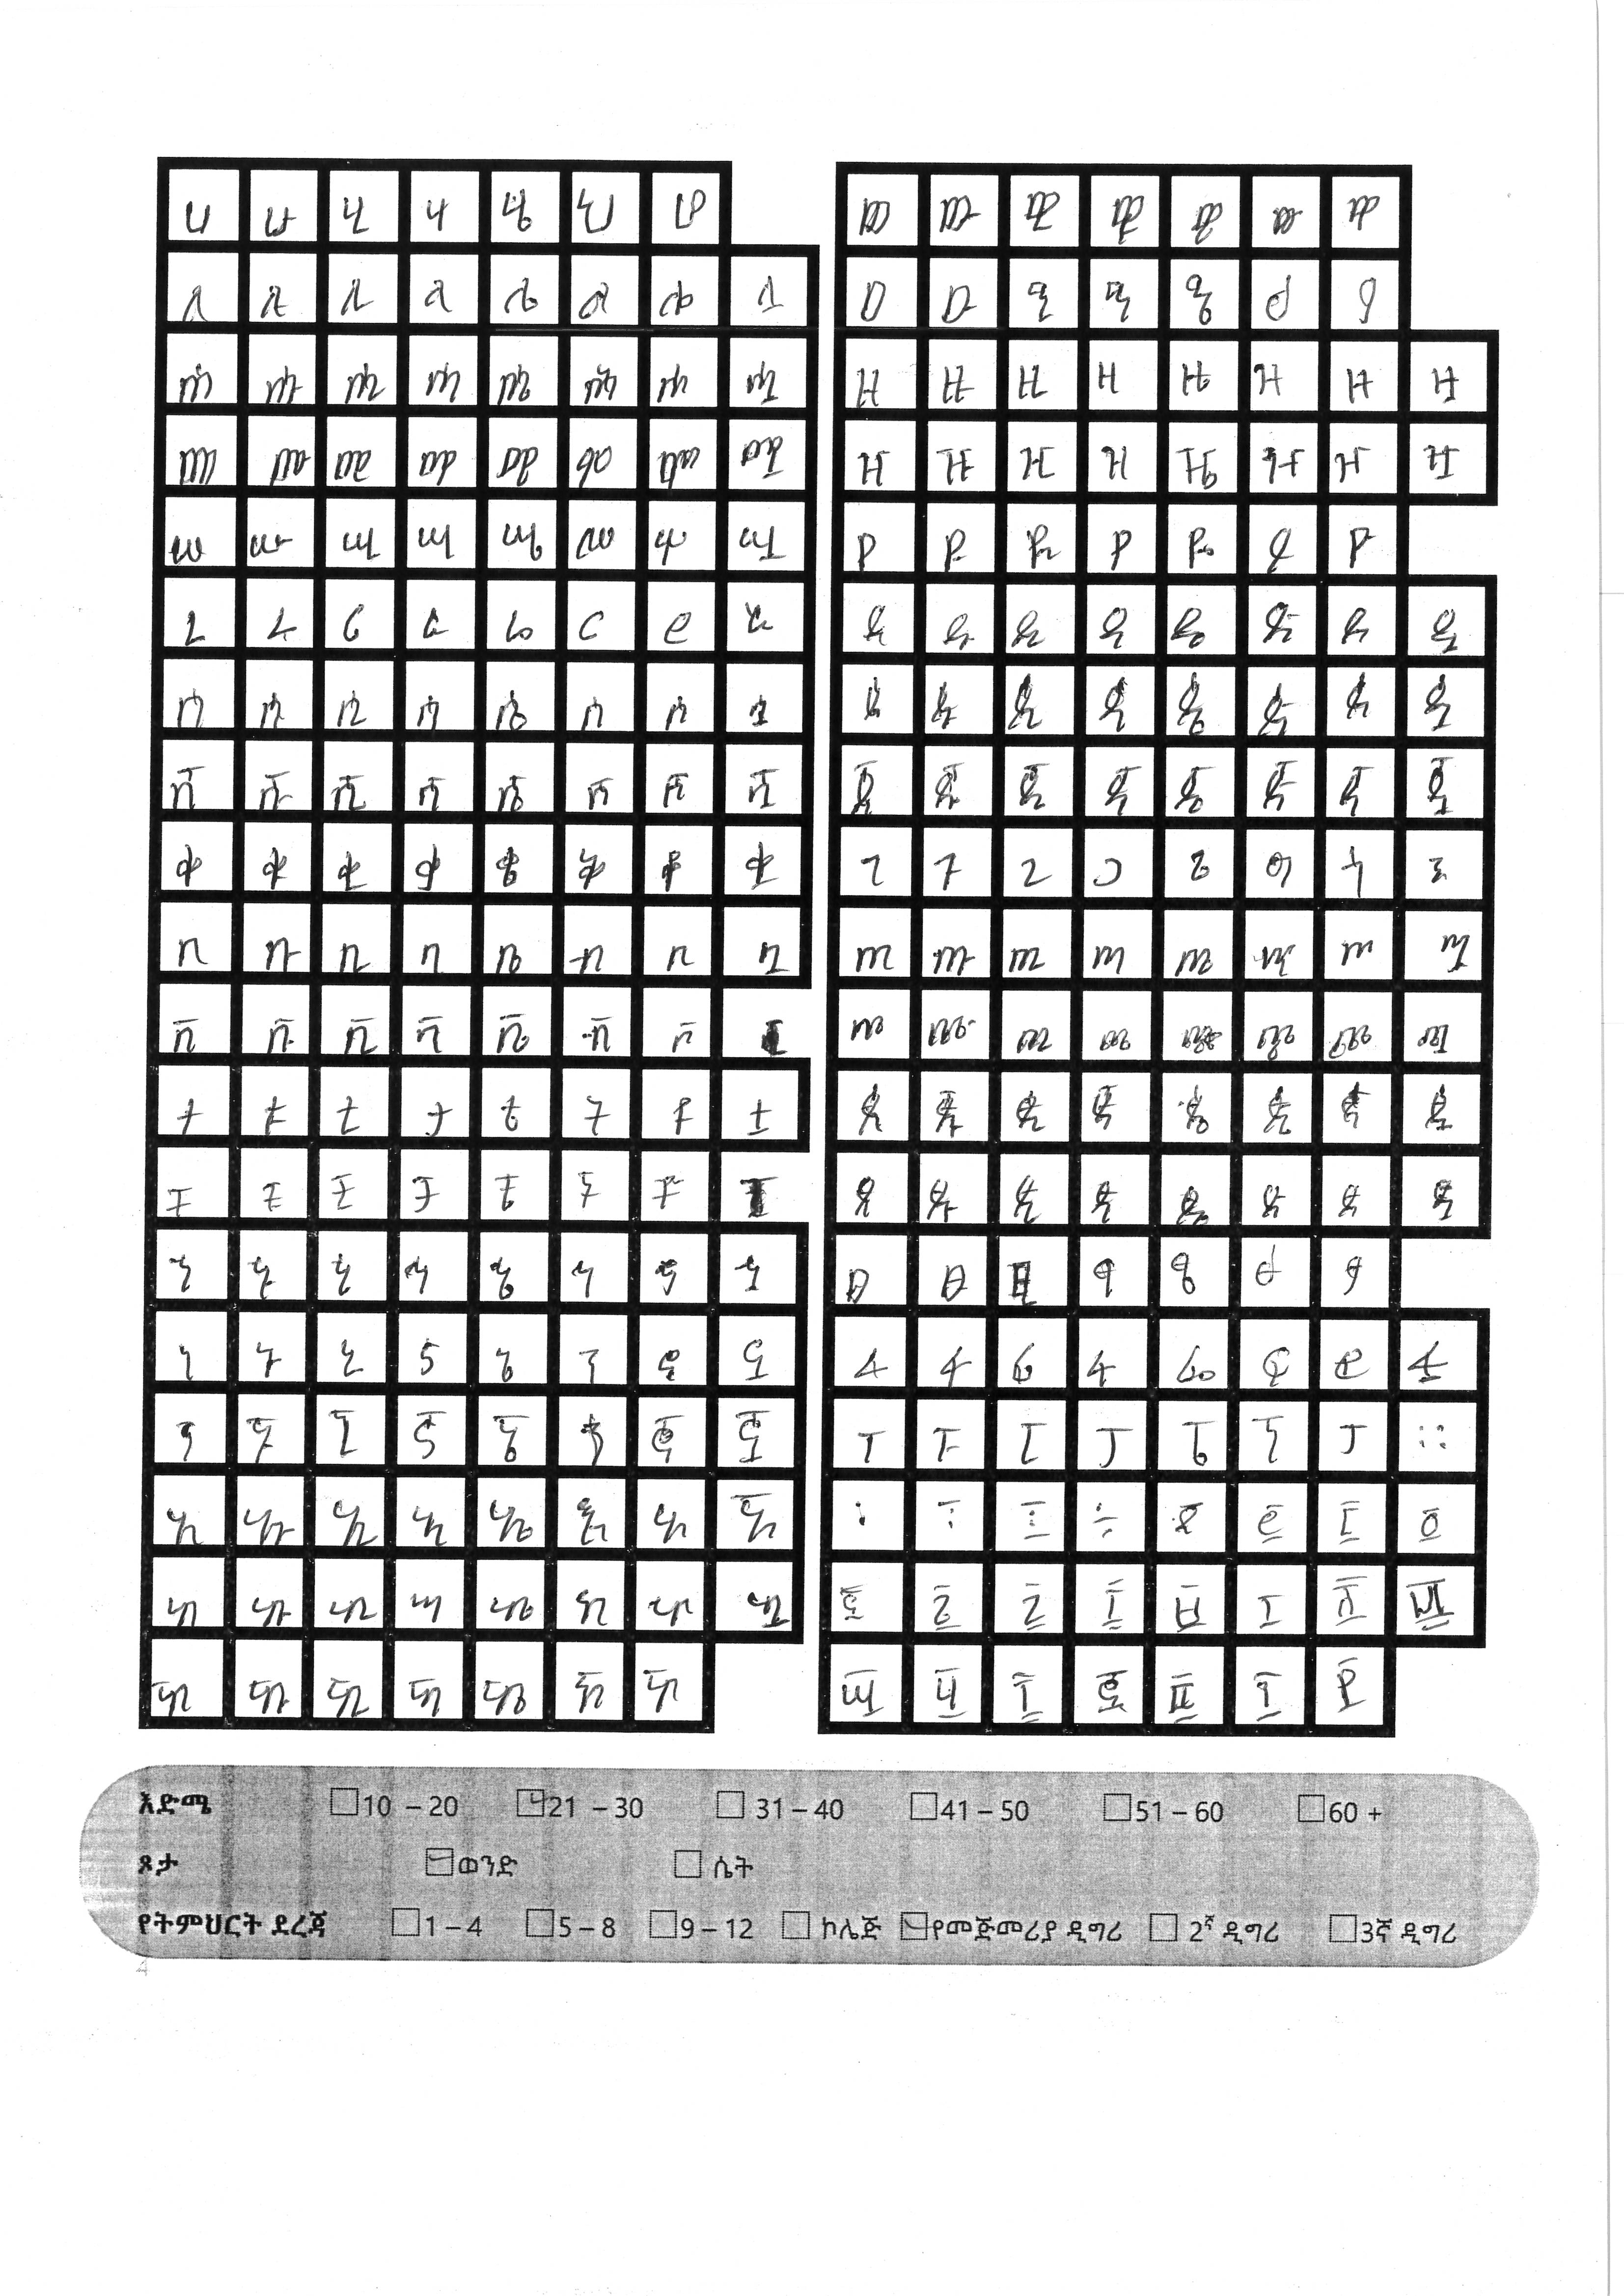 ሀ ሁ ሂ ሃ ሄ ህ ሆ
ለ ሉ ሊ ላ ሌ ል ሎ ሏ
ሐ ሑ ሒ ሓ ሔ ሕ ሖ ሗ
መ ሙ ሚ ማ ሜ ም ሞ ሟ
ሠ ሡ ሢ ሣ ሤ ሥ ሦ ሧ
ረ ሩ ሪ ራ ሬ ር ሮ ሯ
ሰ ሱ ሲ ሳ ሴ ስ ሶ ሷ
ሸ ሹ ሺ ሻ ሼ ሽ ሾ ሿ
ቀ ቁ ቂ ቃ ቄ ቅ ቆ ቋ
በ ቡ ቢ ባ ቤ ብ ቦ ቧ
ቨ ቩ ቪ ቫ ቬ ቭ ቮ
ተ ቱ ቲ ታ ቴ ት ቶ ቷ
ቸ ቹ ቺ ቻ ቼ ች ቾ
ኀ ኁ ኂ ኃ ኄ ኅ ኆ ኋ
ነ ኑ ኒ ና ኔ ን ኖ ኗ
ኘ ኙ ኚ ኛ ኜ ኝ ኞ ኟ
አ ኡ ኢ ኣ ኤ እ ኦ ኧ
ከ ኩ ኪ ካ ኬ ክ ኮ ኳ
ኸ ኹ ኺ ኻ ኼ ኽ ኾ
ወ ዉ ዊ ዋ ዌ ው ዎ
ዐ ዑ ዒ ዓ ዔ ዕ ዖ
ዘ ዙ ዚ ዛ ዜ ዝ ዞ ዟ
ዠ ዡ ዢ ዣ ዤ ዥ ዦ ዧ
የ ዩ ዪ ያ ዬ ይ ዮ
ደ ዱ ዲ ዳ ዴ ድ ዶ ዷ
ጀ ጁ ጂ ጃ ጄ ጅ ጆ ጇ
ገ ጉ ጊ ጋ ጌ ግ ጎ ጓ
ጠ ጡ ጢ ጣ ጤ ጥ ጦ ጧ
ጨ ጩ ጪ ጫ ጬ ጭ ጮ ጯ
ጰ ጱ ጲ ጳ ጴ ጵ ጶ ጷ
ጸ ጹ ጺ ጻ ጼ ጽ ጾ ጿ
ፀ ፁ ፂ ፃ ፄ ፅ ፆ
ፈ ፉ ፊ ፋ ፌ ፍ ፎ ፏ
ፐ ፑ ፒ ፓ ፔ ፕ ፖ ።
፡ ፣ ፤ ÷ ፩ ፪ ፫ ፬
፭ ፮ ፯ ፰ ፱ ፲ ፳ ፴
፵ ፶ ፷ ፸ ፹ ፺ ፻
እድሜ 10 – 20 21 – 30 31 – 40 41 – 50 51 – 60 60 +
ጾታ ወንድ ሴት
የትምህርት ደረጃ 1 – 4 5 – 8 9 – 12 ኮሌጅ የመጅመሪያ ዲግሪ 2ኛ ዲግሪ 3ኛ ዲግሪ